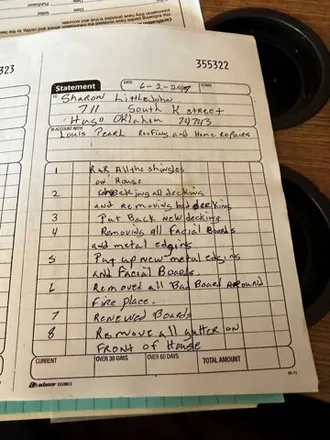 323
355322
Statement
DATE 6-2-2017
TERMS
TO Sharon LittleJohn
711 South K street
Hugo Oklahim 74743
IN ACCOUNT WITH
Louis Pearl Roofing and Home Repairs
1 R&R All the shingles
on House
2 checking all decking
and removing bad decking
3 Put Back new decking
4 Removing all Facial Boards
and metal edgins
5 Put up new metal edgins
and Facial Boards.
6 Removed all Bad Board around
Fire place.
7 Renewed Boards
8 Remove all gutter on
FRONT of House
CURRENT
OVER 30 DAYS
OVER 60 DAYS
TOTAL AMOUNT
adams